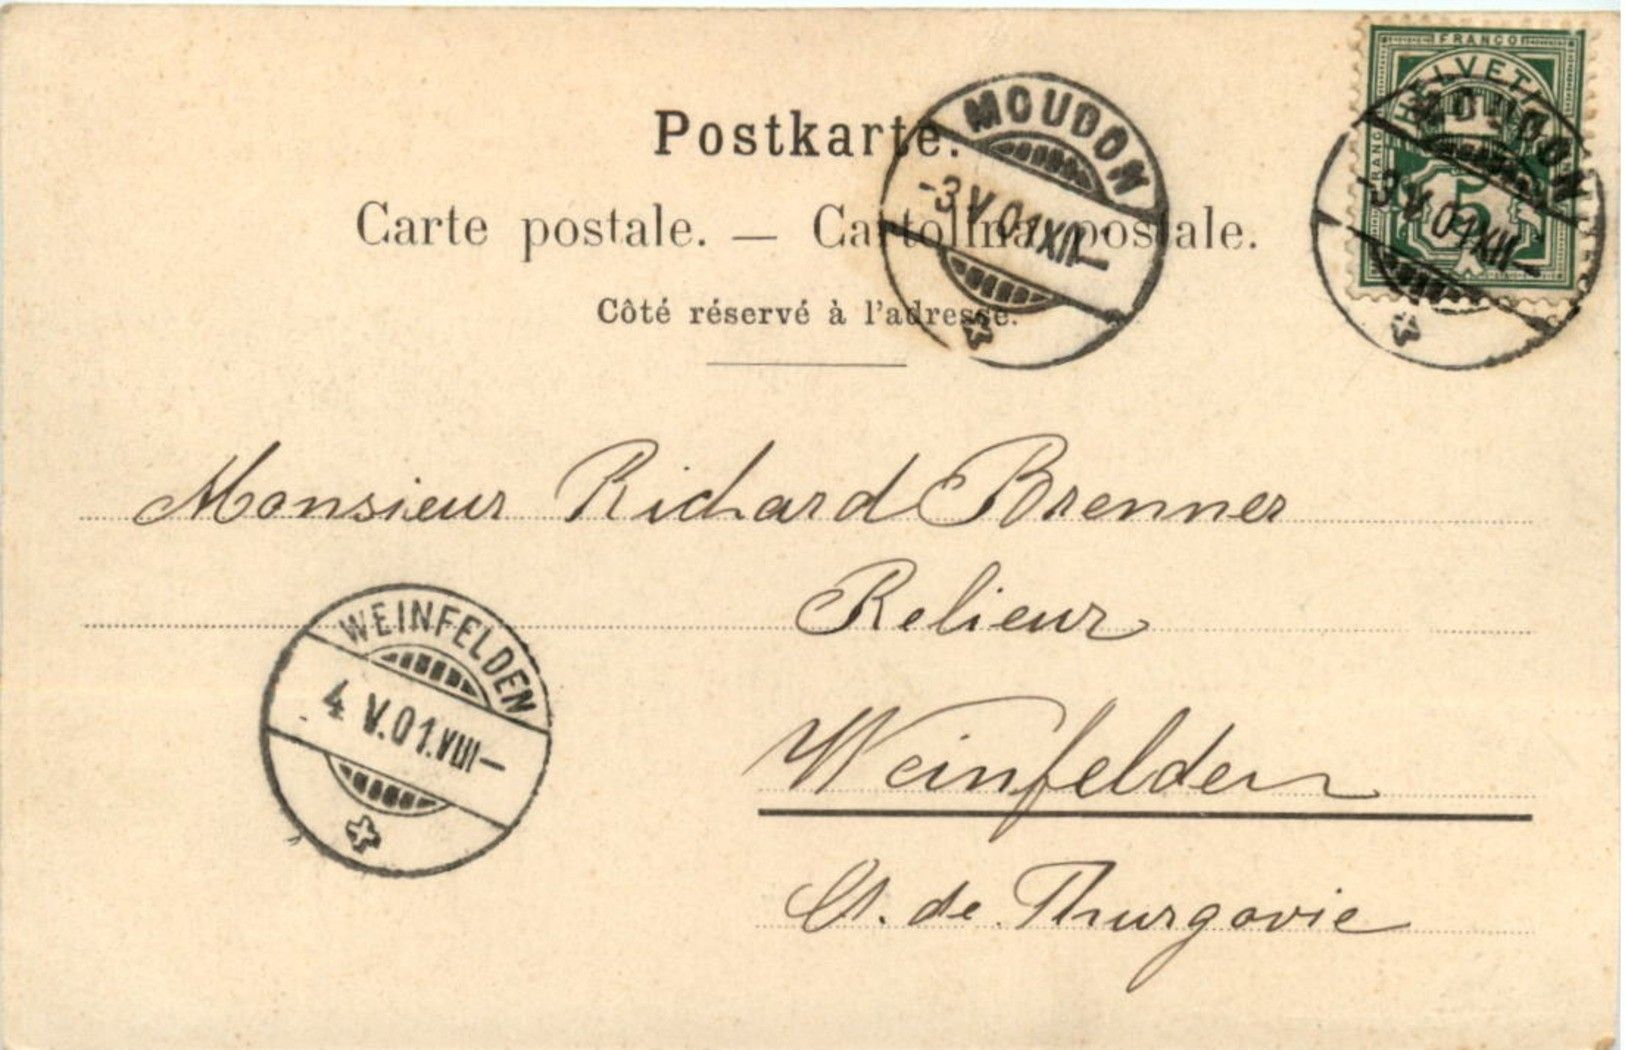 FRANCO
HELVETIA
FRANCO
5
Postkarte.
MOUDON
-3 V.01 XII-
MOUDON
-3 V.01 XII-
Carte postale. — Cartolina postale.
Côté réservé à l'adresse.
Monsieur Richard Brenner
Relieur
WEINFELDEN
4 V.01.VIII-
Weinfelden
Ct. de Thurgovie